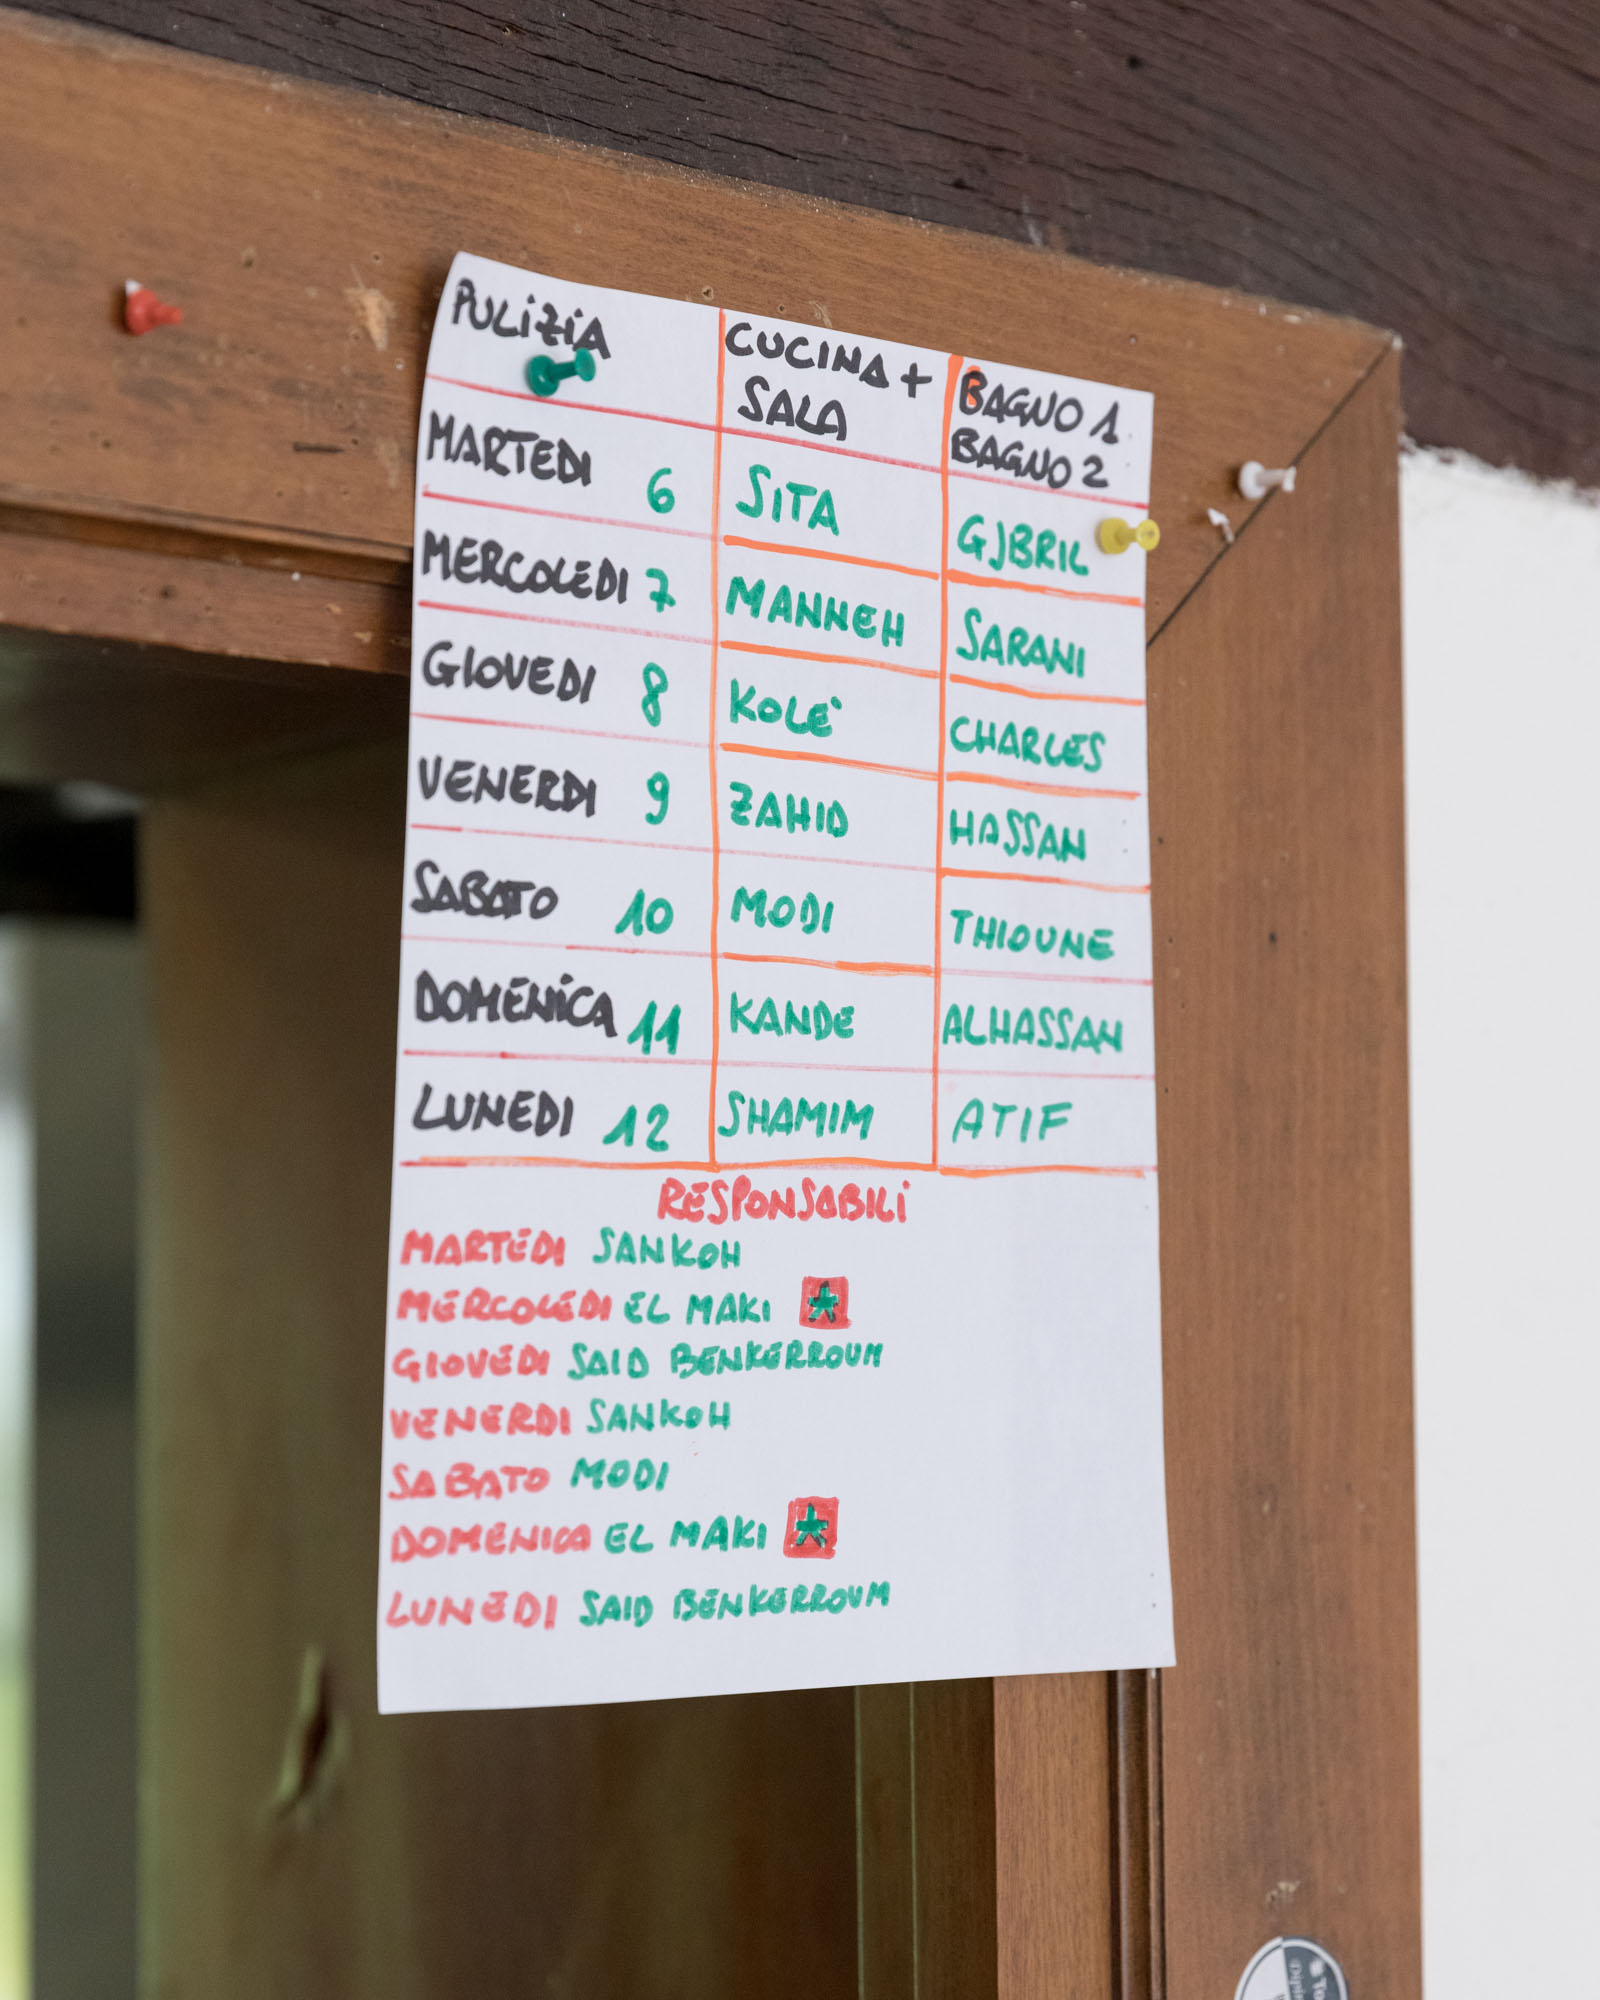 PULIZIA CUCINA + SALA BAGNO 1 BAGNO 2
MARTEDI 6 SITA GJBRIL
MERCOLEDI 7 MANNEH SARANI
GIOVEDI 8 KOLE' CHARLES
VENERDI 9 ZAHID HASSAN
SABATO 10 MODI THIOUNE
DOMENICA 11 KANDE ALHASSAN
LUNEDI 12 SHAMIM ATIF
RESPONSABILI
MARTEDI SANKOH
MERCOLEDI EL MAKI
GIOVEDI SAID BENKERROUM
VENERDI SANKOH
SABATO MODI
DOMENICA EL MAKI
LUNEDI SAID BENKERROUM